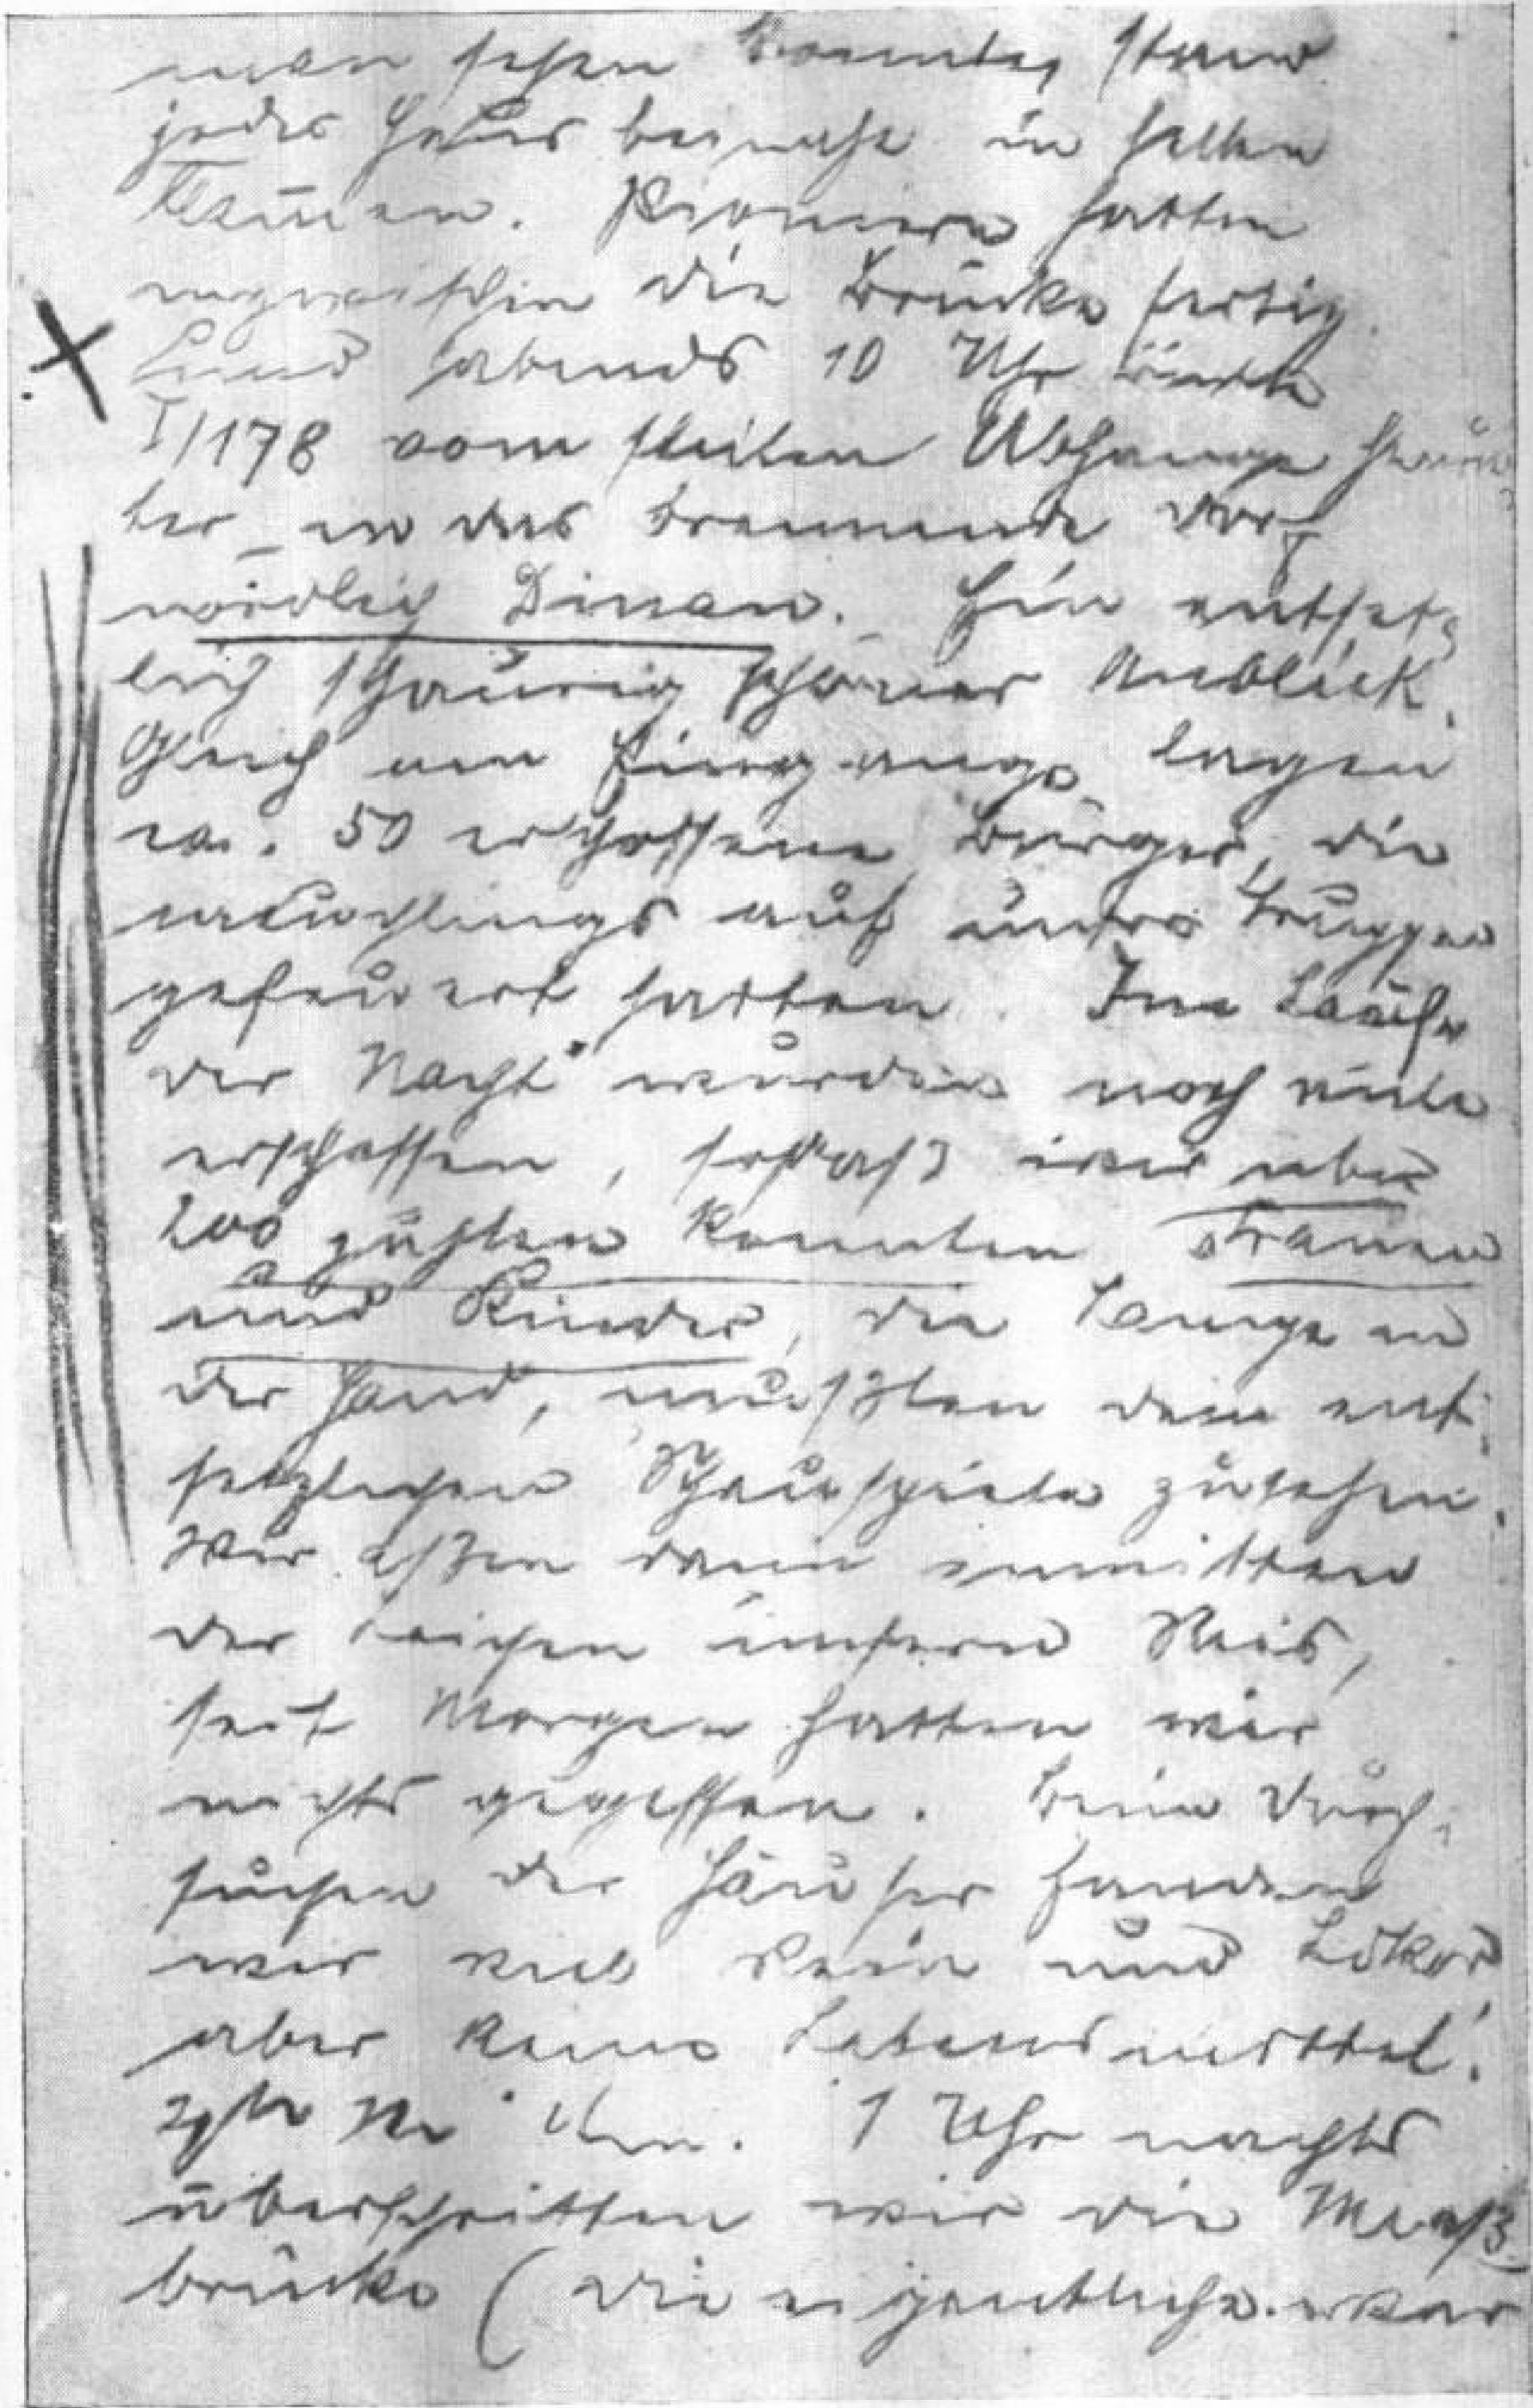 man sehen konnte, stand
jedes Haus beinahe in hellen
Flammen. Pioniere hatten
inzwischen die Brücke fertig.
Und abends 10 Uhr rückte
I/178 vom steilen Abhange herun
ter in das brennende Dorf
nördlich Dinan. Ein entsetz
lich schaurig schöner Anblick.
Gleich am Eingange lagen
ca. 50 erschossene Bürger, die
meuchlings auf unsre Truppen
gefeuert hatten. Im Laufe
der Nacht wurden noch viele
erschossen, sodaß wir über
200 zählen konnten. Frauen
und Kinder, die Lampe in
der Hand, mußten dem ent
setzlichen Schauspiele zusehen.
Wir aßen dann inmitten
der Leichen unsern Reis,
seit Morgen hatten wir
nichts gegessen. Beim Durch
suchen der Häuser fanden
wir viel Wein und Likör,
aber keine Lebensmittel.
1 Uhr nachts
überschritten wir die Maaß
brücke (die eigentliche war